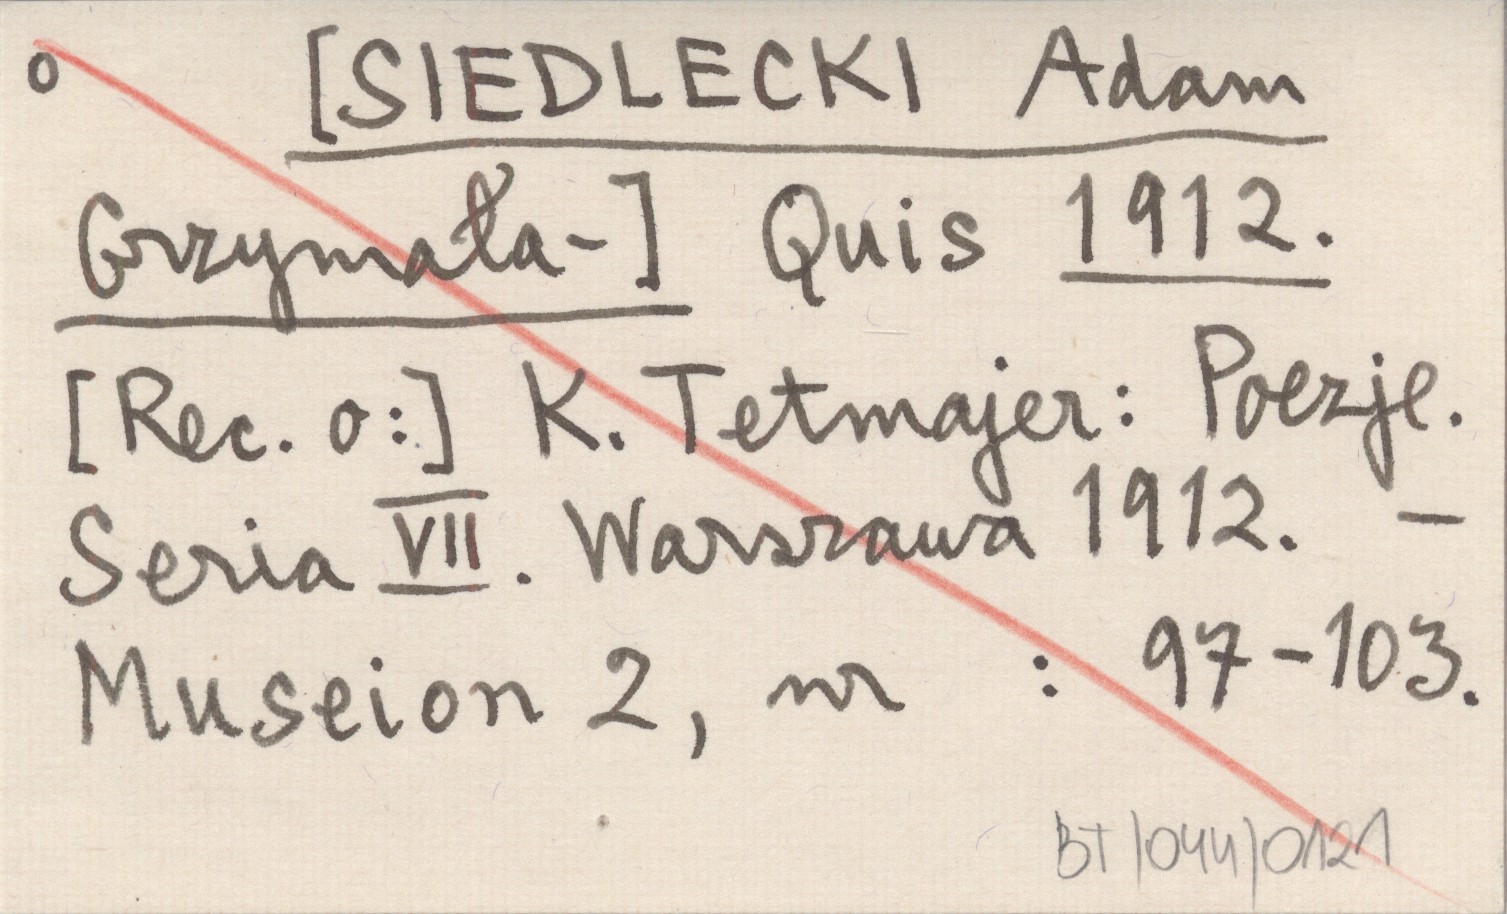 o [SIEDLECKI Adam
Grzymała-] Quis 1912.
[Rec. o:] K. Tetmajer: Poezje.
Seria VII. Warszawa 1912. –
Museion 2, nr : 97-103.
BT/044/0121